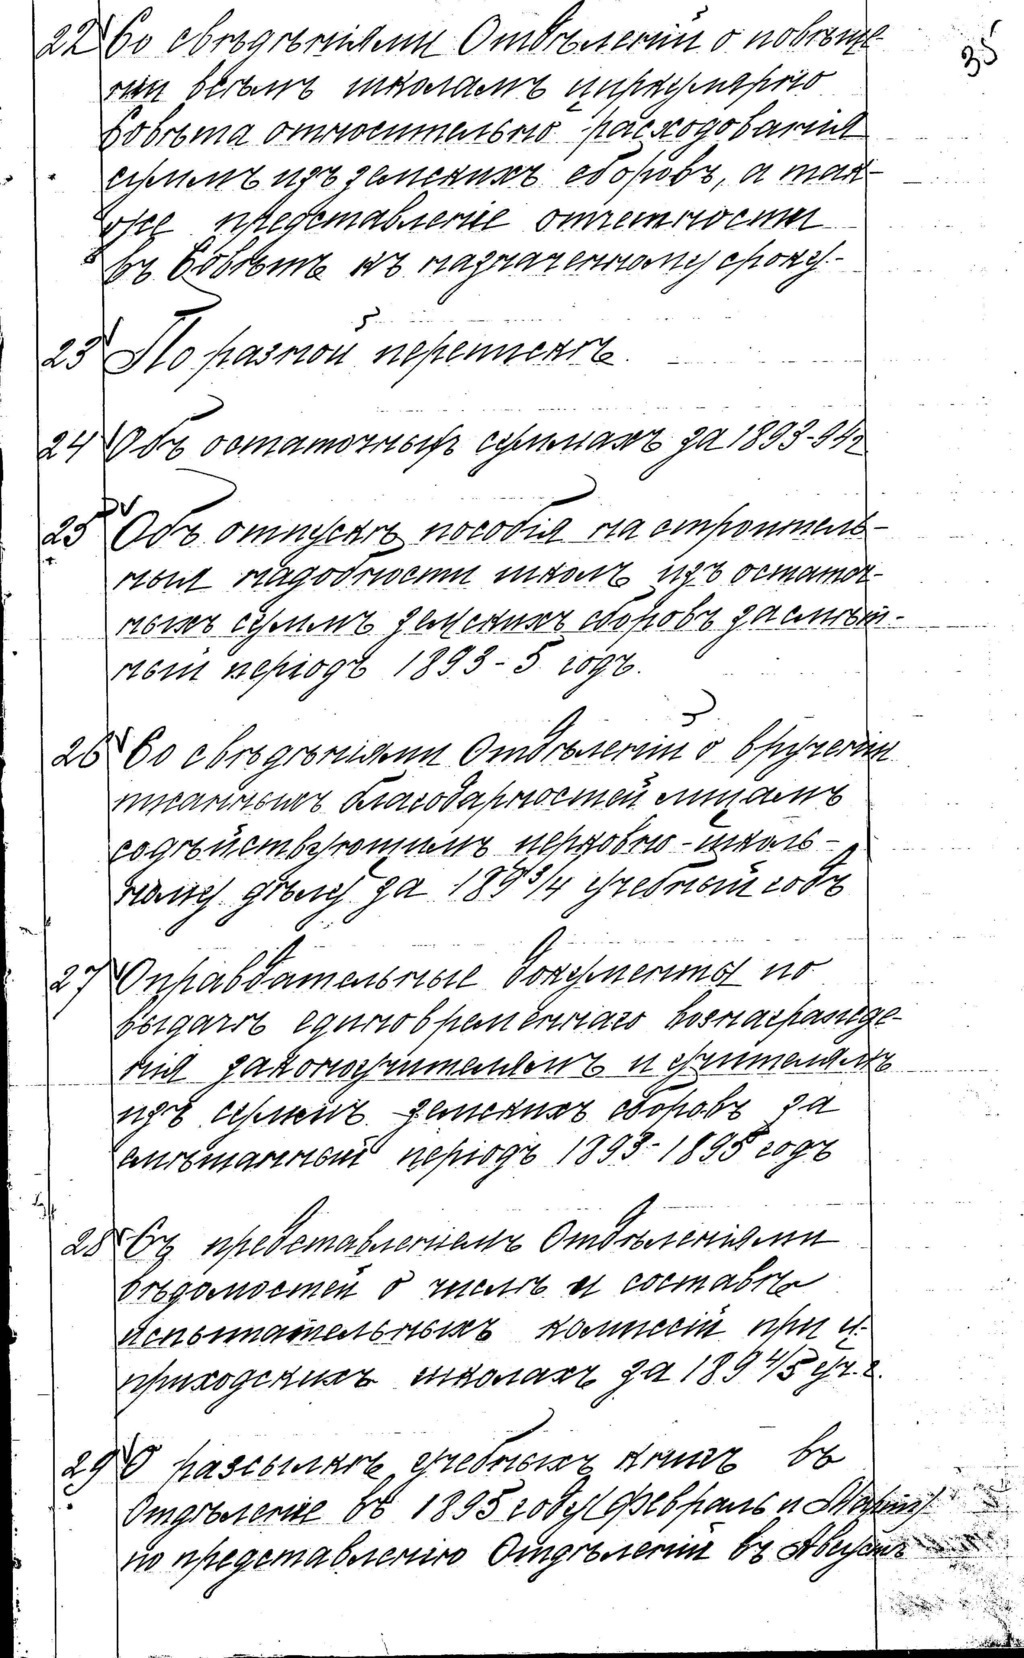 35
22 Со свѣдѣніями Отдѣленій о повѣще-
нии всѣмъ школамъ циркулярно
Совѣта относительно расходованія
суммъ изъ земскихъ сборовъ, а так-
же представленіе отчетности
въ Совѣтъ къ назначенному сроку.-
23 По разной перепискѣ.
24 Объ остаточныхъ суммахъ за 1893-94 г.
25 Объ отпускѣ пособія на строитель-
ныя надобности школъ изъ остаточ-
ныхъ суммъ земскихъ сборовъ за смѣт-
ный періодъ 1893-5 годъ.
26 Со свѣдѣніями Отдѣленій о врученіи
писанныхъ благодарностей лицамъ
содѣйствующимъ церковно-школь-
ному дѣлу за 1893/4 учебный годъ
27 Оправдательные документы по
выдачѣ единовременнаго вознагражде-
нія законоучителямъ и учителямъ
изъ суммъ земскихъ сборовъ за
смѣтанный періодъ 1893-1895 годъ
28 Съ представленіемъ Отдѣленіями
вѣдомостей о числѣ и составѣ
испытательныхъ комиссій при ц.
приходскихъ школахъ за 1894/5 уч. г.
29 О разсылкѣ учебныхъ книгъ въ
Отдѣленіе въ 1895 году (Февраль и Мартъ)
по представленію Отдѣленій въ Августѣ